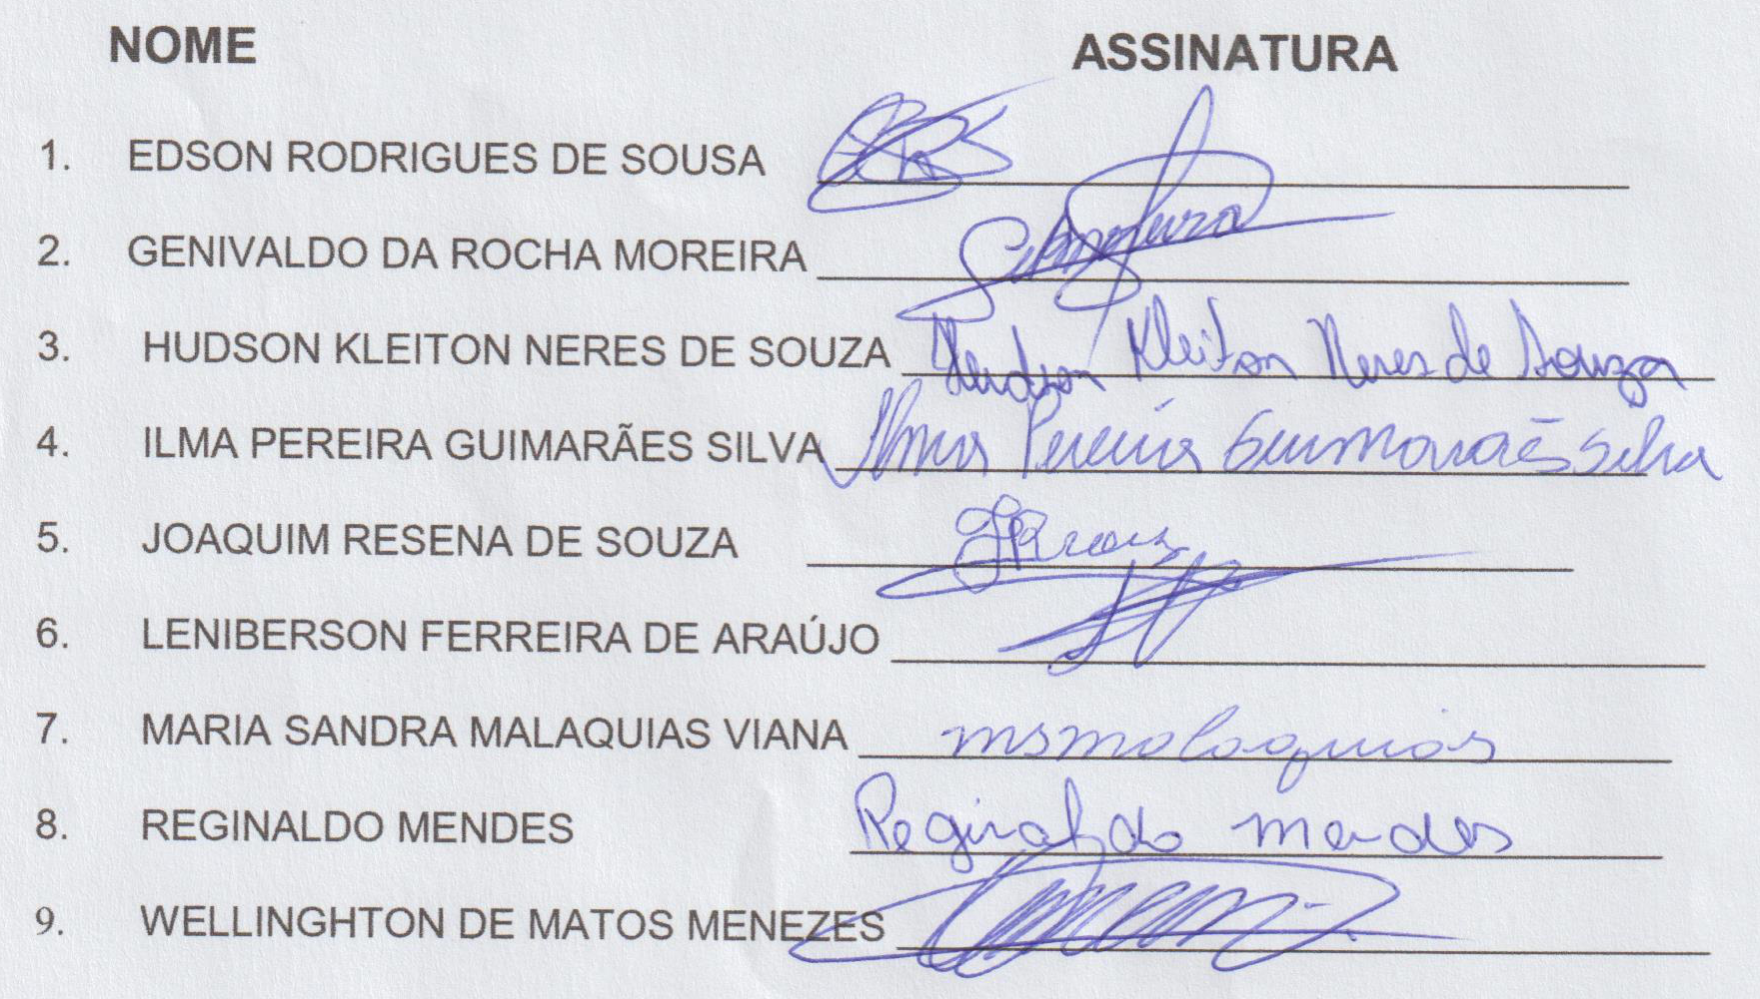 NOME ASSINATURA
1. EDSON RODRIGUES DE SOUSA
2. GENIVALDO DA ROCHA MOREIRA
3. HUDSON KLEITON NERES DE SOUZA Hudson Kleiton Neres de Souza
4. ILMA PEREIRA GUIMARÃES SILVA Ilma Pereira Guimarães Silva
5. JOAQUIM RESENA DE SOUZA
6. LENIBERSON FERREIRA DE ARAÚJO
7. MARIA SANDRA MALAQUIAS VIANA msmalaquias
8. REGINALDO MENDES Reginaldo mendes
9. WELLINGHTON DE MATOS MENEZES